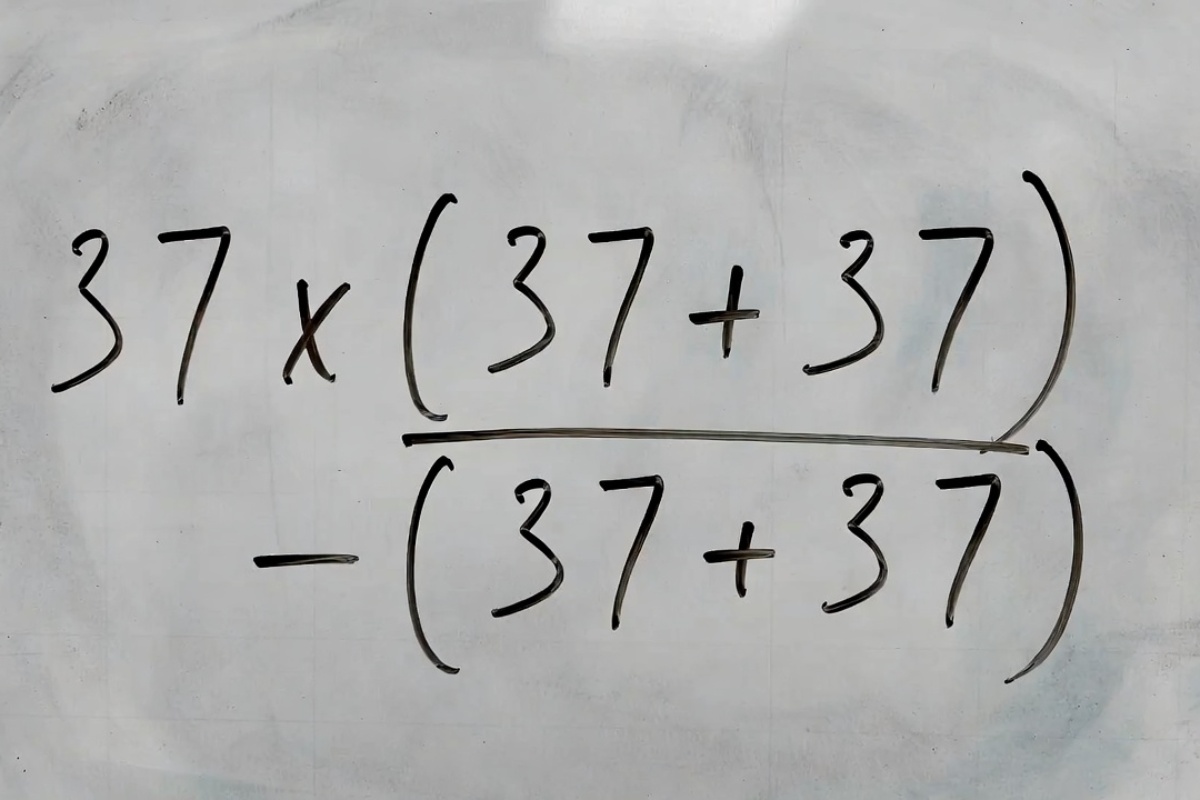 37 x (37 + 37)
- (37 + 37)